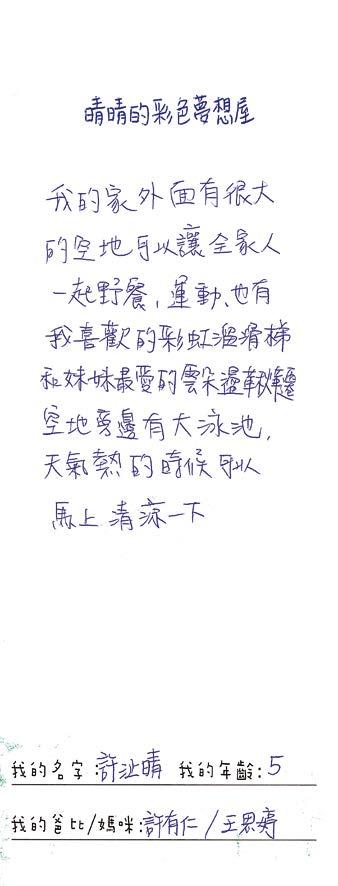 晴晴的彩色夢想屋
我的家外面有很大
的空地可以讓全家人
一起野餐,運動、也有
我喜歡的彩虹溜滑梯
和妹妹最愛的雲朵盪鞦韆
空地旁邊有大泳池,
天氣熱的時候可以
馬上清涼一下
我的名字:許沚晴 我的年齡:5
我的爸比/媽咪:許有仁/王思婷